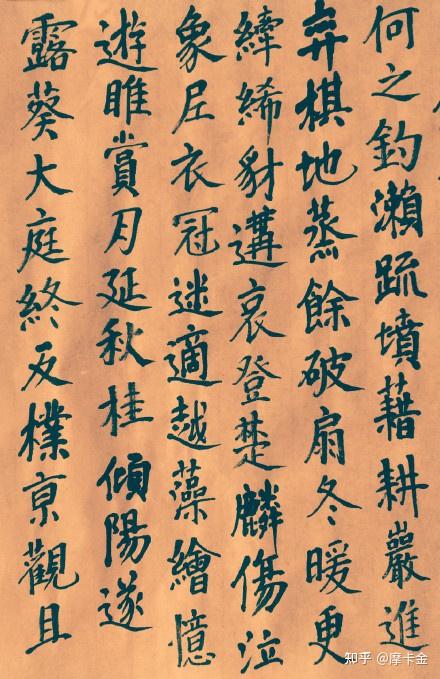 何之釣瀨疏墳藉耕巖進
弈棋地蒸餘破扇冬暖更
纖絺豺遘哀登楚麟傷泣
象尼衣冠迷適越藻繪憶
遊睢賞月延秋桂傾陽逐
露葵大庭終反樸京觀且
知乎 @摩卡金